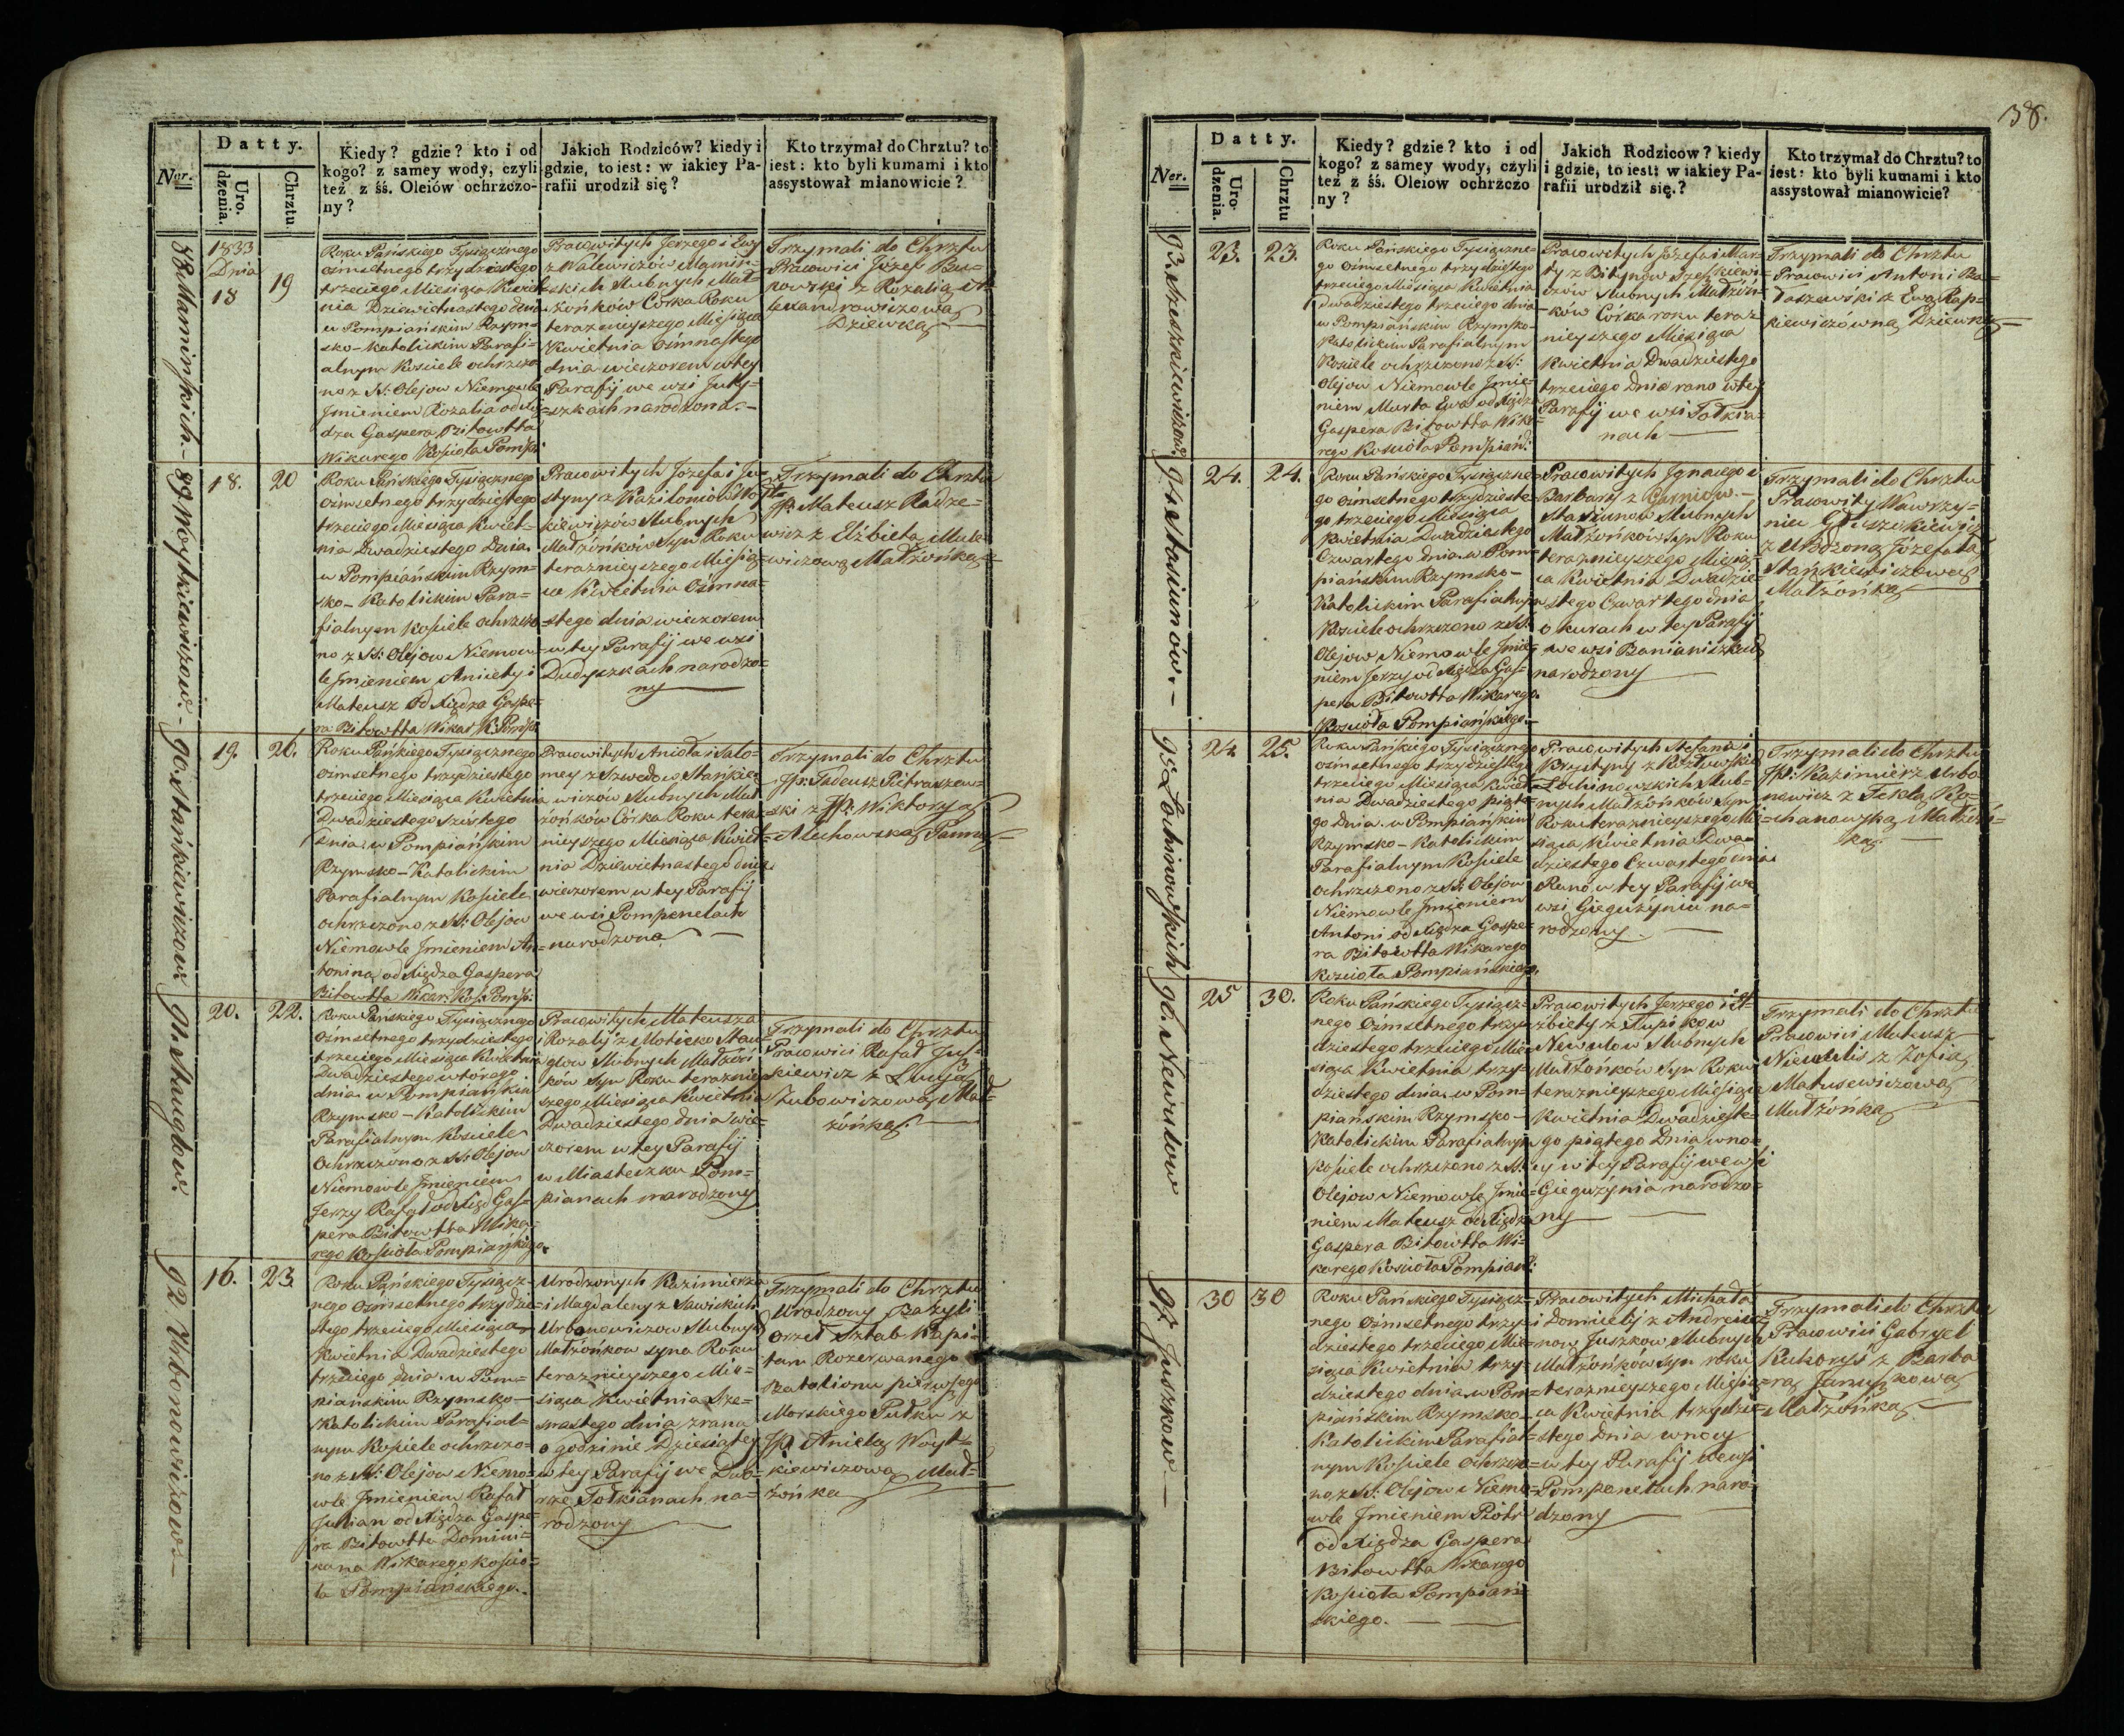 Ner.
Datty.
Uro.
dzenia.
Chrztu
Kiedy? gdzie? kto i od
kogo? z samey wody, czyli
też z śś. Oleiów ochrzczo-
ny?
Jakich Rodziców? kiedy i
gdzie, to iest: w iakiey Pa-
rafii urodził się?
Kto trzymał do Chrztu? to
iest: kto byli kumami i kto
assystował mianowicie?
88 Mamińskich.
1833
Dnia
18
19
Roku Pańskiego Tysiącznego
osmsetnego trzydziestego
trzeciego Miesiąca Kwiet-
nia Dziewietnastego dnia
w Pompiańskim Rzym-
sko-Katolickim Parafi-
alnym Kosciele ochrzczo
no z SS: Olejow Niemowle
Jmieniem Rozalia od Xię-
dza Gaspera Bitowtta
Wikarego Koscioła Pomp:
Pracowitych Jerzego i Ewy
z Walewiczów Mamiń-
skich slubnych Mał
żonków Córka Roku
teraznieyszego Miesiąca
Kwietnia Osmnastego
dnia wieczorem w tey
Parafij we wsi Juty-
szkach narodzona.-
Trzymali do Chrztu
Pracowici Józef Bu-
kowski z Rozalią
lexandrowiczową
Dziewką
89. Woytkiewiczow.
18.
20
Roku Pańskiego Tysiącznego
Osmsetnego trzydziestego
trzeciego Miesiąca Kwiet-
nia Dwadziestego Dnia
w Pompiańskim Rzym-
sko-Katolickim Para-
fialnym Kosciele ochrzczo
no z SS: Olejow Niemow-
le Jmieniem Anicety i
Mateusz od Xiędza Gaspe-
ra Bitowtta Wikar K: Pomp:
Pracowitych Józefa i Ju-
styny z Kazilonio Woyt-
kiewiczów slubnych
Małżonków Syn Roku
teraznieyszego Miesią-
ca Kwietnia Osmna-
stego dnia wieczorem
w tey Parafij we wsi
Dudyszkach narodzo-
ny
Trzymali do Chrztu
Jp: Mateusz Radze-
wicz z Elżbietą Mule-
wiczową Małżonką
90. Stańkiewiczow.
19.
26.
Roku Pańskiego Tysiącznego
Osmsetnego trzydziestego
trzeciego Miesiąca Kwietnia
Dwadziestego Szostego
Dnia w Pompiańskim
Rzymsko-Katolickim
Parafialnym Kosciele
ochrzczono z SS: Olejow
Niemowle Jmieniem An-
tonina od Xiędza Gaspera
Bitowtta Wikar: Kos: Pomp:
Pracowitych Anioła i Salo-
mey z Szwedow Stańkie
wiczów slubnych Mał-
żonków Córka Roku teraz
nieyszego Miesiąca Kwiet-
nia Dziewietnastego dnia
wieczorem w tey Parafij
we wsi Pompenelach
narodzona
Trzymali do Chrztu
Jp: Tadeusz Pietraszew-
ski z Jp: Wiktoryą
Alechowską Panną
91. Skauglow.
20.
22.
Roku Pańskiego Tysiącznego
Osmsetnego trzydziestego
trzeciego Miesiąca Kwietnia
Dwadziestego wtórego
dnia w Pompiańskim
Rzymsko-Katolickim
Parafialnym Kosciele
Ochrzczono z SS: Olejow
Niemowle Jmieniem
Jerzy Rafał od Xięd Gas-
pera Bitowtta Wika-
rego Kosciola Pompiańskiego.
Pracowitych Mateusza
i Rozalij z Motieko Skau
glow slubnych Małżon-
ków Syn Roku teraznie-
szego Miesiąca Kwietnia
Dwadziestego dnia wie-
czorem w tey Parafij
w Miasteczku Pom-
pianach narodzony
Trzymali do Chrztu
Pracowici Rafał Jus-
kiewicz z Lucją
Zubowiczową Mał-
żonką.
92. Urbonowiczow-
16.
23
Roku Pańskiego Tysiącz-
nego Osmsetnego trzydzie-
stego trzeciego Miesiąca
Kwietnia Dwadziestego
trzeciego dnia w Pom-
piańskim Rzymsko-
Katolickim Parafial-
nym Kosciele ochrzczo-
no z SS: Olejow Niemo-
wle Jmieniem Rafał
Julian od Xiędza Gaspe-
ra Bitowtta Domini-
kana Wikarego Koscio-
ła Pompiańskiego.
Urodzonych Kazimierza
i Magdaleny z Sawickich
Urbonowiczow slubnych
Małżonkow syna Roku
teraznieyszego Mie-
siąca Kwietnia Sze-
snastego dnia zrana
o godzinie Dziesiątey
w tey Parafij we Dwo-
rze Tołkianach na-
rodzony
Trzymali do Chrztu
Urodzony Bazyli
Orzeł Sztab-Kapi-
tan Rozerwanego
Batalionu pierwszego
Morskiego Pułku z
Jp: Anielą Woyt-
kiewiczową Mał-
żonką
38.
Ner.
Datty.
Uro-
dzenia.
Chrztu
Kiedy? gdzie? kto i od
kogo? z samey wody, czyli
też z śś. Oleiow ochrzczo
ny?
Jakich Rodzicow? kiedy
i gdzie, to iest: w iakiey Pa-
rafii urodził się.?
Kto trzymał do Chrztu? to
iest: kto byli kumami i kto
assystował mianowicie?
93. Szeszkiewiczow.
23.
23.
Roku Pańskiego Tysiączne-
go Osmsetnego trzydziestego
trzeciego Miesiąca Kwietnia
Dwadziestego trzeciego dnia
w Pompiańskim Rzymsko-
Katolickim Parafialnym
Kosciele ochrzczono z SS:
Olejow Niemowle Jmie-
niem Marta Ewa od Xiędza
Gaspera Bitowtta Wika-
rego Kosciola Pompiań:
Pracowitych Józefa i Mar-
ty z Bitynow Szeszkiewi-
czów slubnych Małżon-
ków Córka roku teraz
nieyszego Miesiąca
Kwietnia Dwadziestego
trzeciego Dnia rano w tey
Parafij we wsi Tołkia-
nach
Trzymali do Chrztu
Pracowici Antoni Ba-
łaszewski z Ewą Rap-
kiewiczówną Dziewką
94. Stasiunow.-
24.
24.
Roku Pańskiego Tysiączne-
go osmsetnego trzydzieste-
go trzeciego Miesiąca
Kwietnia Dwadziestego
Czwartego dnia w Pom-
piańskim Rzymsko-
Katolickim Parafialnym
Kosciele ochrzczono z SS:
Olejow Niemowle Jmie-
niem Jerzy od Xiędza Gas-
pera Bitowtta Wikarego
Kosciola Pompiańskiego.-
Pracowitych Jgnacego i
Barbary z Garniow.-
Stasiunow slubnych
Małżonkow syn Roku
teraznieyszego Miesią-
ca Kwietnia Dwadzie-
stego Czwartego dnia
o kurach w tey Parafij
we wsi Banianiszkach
narodzony
Trzymali do Chrztu
Pracowity Wawrzy-
niec Głuszkiewicz
z Urodzoną Józefatą
Stańkiewiczową
Małżonką
95. Lochinowskich
24
25.
Roku Pańskiego Tysiącznego
osmsetnego trzydziestego
trzeciego Miesiąca Kwiet-
nia Dwadziestego piąte-
go Dnia w Pompiańskim
Rzymsko-Katolickim
Parafialnym Kosciele
ochrzczono z SS: Olejow
Niemowle Jmieniem
Antoni od Xiędza Gaspe-
ra Bitowtta Wikarego
Kosciola Pompiańskiego.
Pracowitych Stefana i
Krystyny z Kozłowskich
Lochinowskich slub-
nych Małżonków Syn
Roku teraznieyszego Mie-
siąca Kwietnia Dwa-
dziestego Czwartego dnia
Rano w tey Parafij we
wsi Giegużyniu na-
rodzony.
Trzymali do Chrztu
Jp: Kazimierz Urbo
nowicz z Teklą Ko-
chanowską Małżon-
ką.
96. Newulow
25
30.
Roku Pańskiego Tysiącz-
nego Osmsetnego trzy-
dziestego trzeciego Mie-
siąca Kwietnia trzy-
dziestego dnia w Pom-
piańskim Rzymsko-
Katolickim Parafialnym
Kosciele ochrzczono z SS:
Olejow Niemowle Jmie-
niem Mateusz od Xiędza
Gaspera Bitowtta Wi-
karego Kosciola Pompiań:
Pracowitych Jerzego i El-
żbiety z Stupikow
Newulow slubnych
Małżonków Syn Roku
teraznieyszego Miesiąca
Kwietnia Dwadzieste-
go piątego Dnia w no-
cy w tey Parafij we wsi
Giegużynia narodzo-
ny
Trzymali do Chrztu
Pracowici Mateusz
z Zofią
Matusewiczową
Małżonką
97. Juszkow
30
30
Roku Pańskiego Tysiącz-
nego Osmsetnego trzy-
dziestego trzeciego Mie-
siąca Kwietnia trzy-
dziestego dnia w Pom-
piańskim Rzymsko-
Katolickim Parafial-
nym Kosciele ochrzczo-
no z SS: Olejow Niemo-
wle Jmieniem Piotr
od Xiędza Gaspera
Bitowtta Wikarego
Kosciola Pompiań-
skiego.
Pracowitych Michała
i Domiceli z Andreiu-
now Juszkow slubnych
Małżonków Syn roku
teraznieyszego Miesią-
ca Kwietnia trzydzie-
stego Dnia w nocy
w tey Parafij we wsi
Pompenelach naro-
dzony
Trzymali do Chrztu
Pracowici Gabryel
Kukoryś z Barba
rą Januszkową
Małżonką